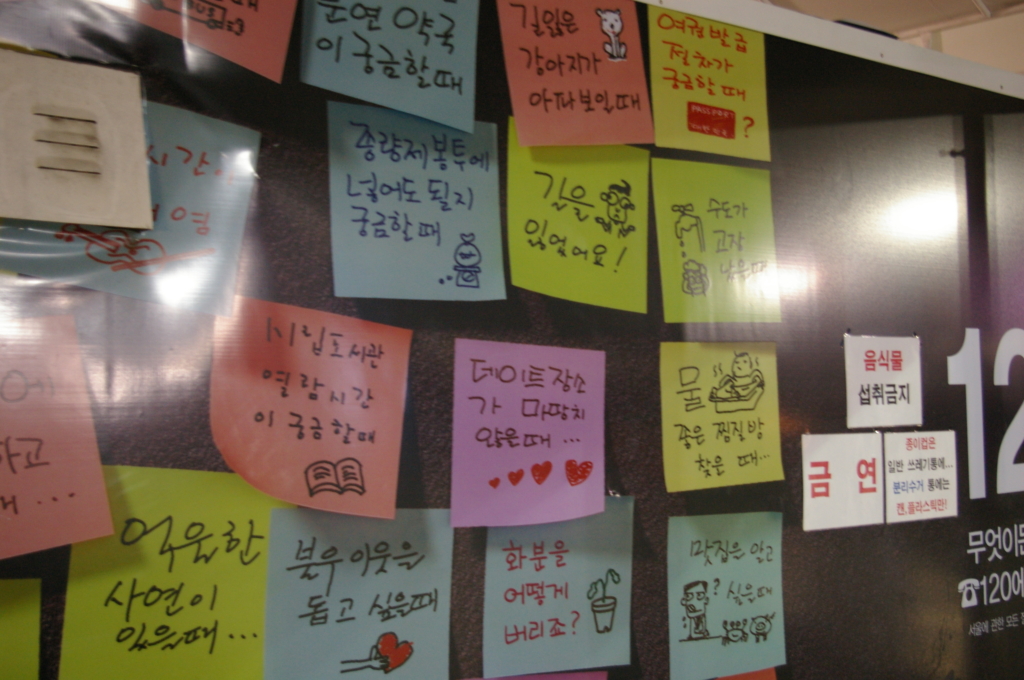 문연 약국
이 궁금할때
길잃은
강아지가
아파보일때
여권 발급
절차가
궁금할 때
PASSPORT
?
종량제 봉투에
넣어도 될지
궁금할 때
길을
잃었어요!
수도가
고장
났을때
시립도서관
열람시간
이 궁금할때
데이트장소
가 마땅치
않은때...
물
좋은 찜질방
찾은 때...
음식물
섭취금지
금연
종이컵은
일반 쓰레기통에...
분리수거 통에는
캔,플라스틱만!
억울한
사연이
있을때...
불우이웃을
돕고 싶을때
화분을
어떻게
버리죠?
맛집은 알고
? 싶을때
12
무엇이든
☎120에